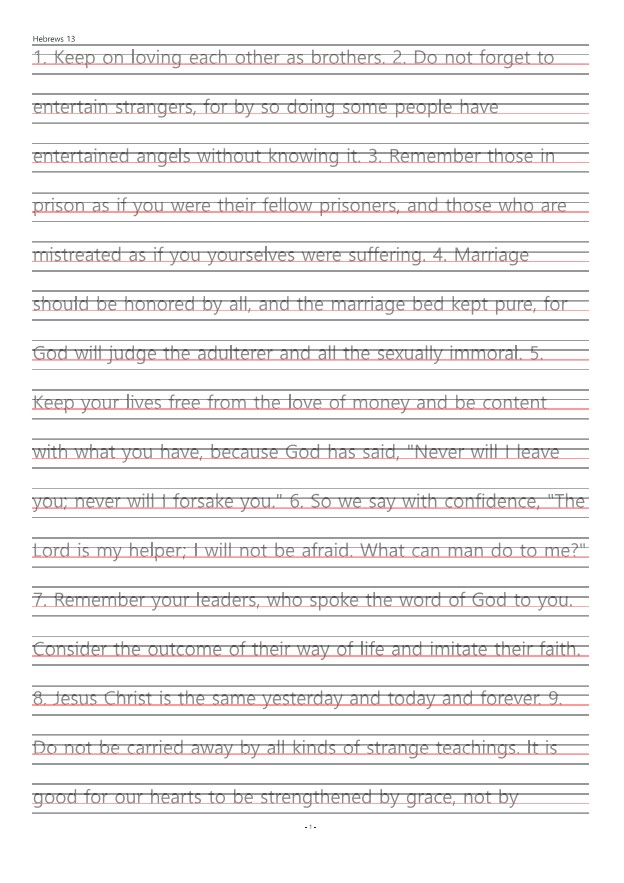 Hebrews 13
1. Keep on loving each other as brothers. 2. Do not forget to
entertain strangers, for by so doing some people have
entertained angels without knowing it. 3. Remember those in
prison as if you were their fellow prisoners, and those who are
mistreated as if you yourselves were suffering. 4. Marriage
should be honored by all, and the marriage bed kept pure, for
God will judge the adulterer and all the sexually immoral. 5.
Keep your lives free from the love of money and be content
with what you have, because God has said, "Never will I leave
you; never will I forsake you." 6. So we say with confidence, "The
Lord is my helper; I will not be afraid. What can man do to me?"
7. Remember your leaders, who spoke the word of God to you.
Consider the outcome of their way of life and imitate their faith.
8. Jesus Christ is the same yesterday and today and forever. 9.
Do not be carried away by all kinds of strange teachings. It is
good for our hearts to be strengthened by grace, not by
- 1 -